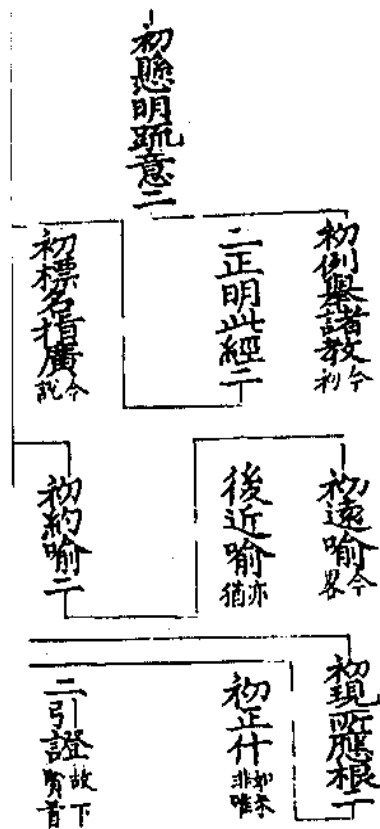 初懸明疏意二
初例舉諸教今初
二正明此經二
初標名指廣今說
初遠喻今畧
後近喻亦猶
初約喻二
初現所應根二
初正什如來非唯
二引證故下賢首